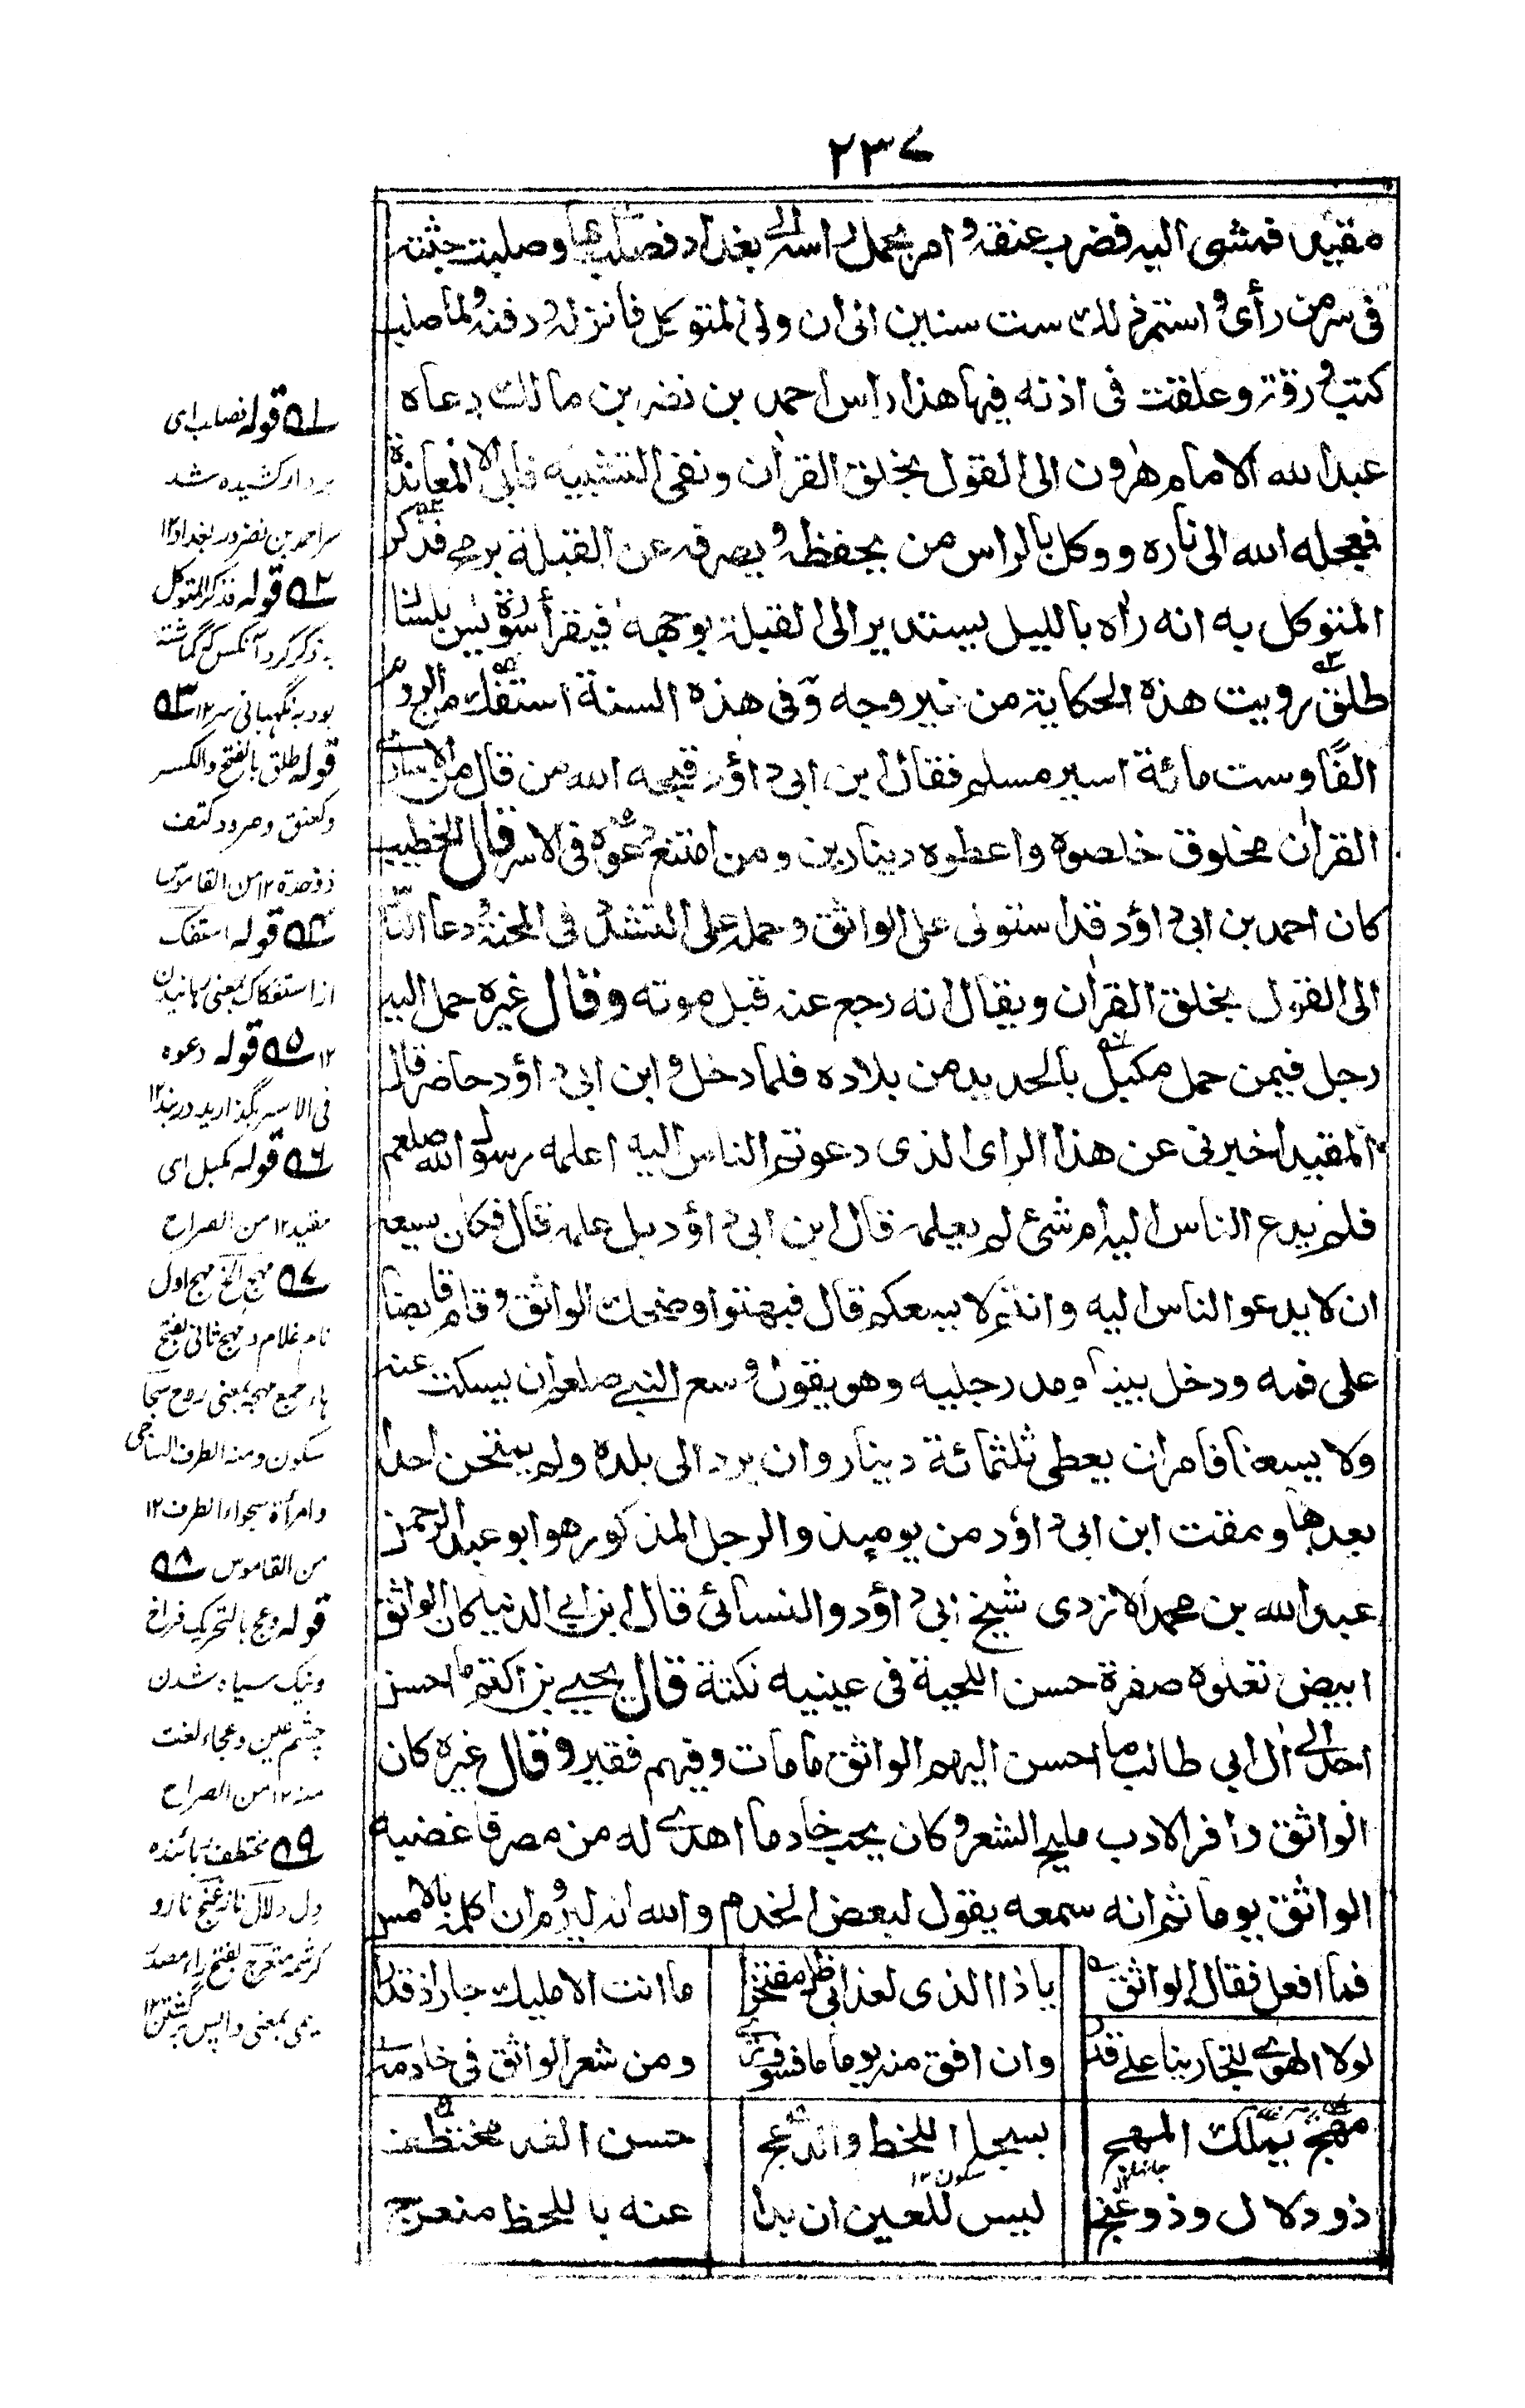 ٢٣٧
مقيد فمشى اليه فضرب عنقه و امر بحمل راسه الى بغداد فصلب بها و صلبت جثته
فى سر من رأى و استمر ذلك ست سنين الى ان ولى المتوكل فانزله و دفنه و لما صلب
كتب ورقة و علقت فى اذنه فيها هذا راس احمد بن نصر بن مالك دعاه
عبد الله الامام هٰرون الى القول بخلق القراٰن و نفى التشبيه فابى الا المعاندة
فعجله الله الى ناره و وكل بالراس من يحفظه و يصرفه عن القبلة برمح فذكر
المتوكل به انه راٰه بالليل يستدير الى القبلة بوجهه فيقرأ سورة يٰس بلسان
طلق رويت هذه الحكاية من غير وجه و فى هذه السنة استفك من الروم
الفًا و ست مائة اسير مسلم فقال ابن ابى داؤد قبحه الله من قال من الاسارى
القراٰن مخلوق خلصوه و اعطوه دينارين و من امتنع دعوه فى الاسر قال الخطيب
كان احمد بن ابى داؤد قد استولى على الواثق و حمله على التشدد فى المحنة و دعا الناس
الى القول بخلق القراٰن و يقال انه رجع عنه قبل موته و قال غيره حمل اليه
رجل فيمن حمل مكبل بالحديد من بلاده فلما دخل و ابن ابى داؤد حاضر قال
المقيد اخبرنى عن هذا الراى الذى دعوتم الناس اليه اعلمه رسول الله صلعم
فلم يدع الناس اليه ام شئ لم يعلمه قال ابن ابى داؤد بل علمه قال فكان يسعه
ان لا يدعو الناس اليه و انتم لا يسعكم قال فبهتوا و ضحك الواثق و قام قابضا
على فمه و دخل بيتا و مد رجليه و هو يقول وسع النبى صلعم ان يسكت عنه
ولا يسعنا فامر ان يعطى ثلثمائة دينار و ان يرد الى بلده و لم يمتحن احدا
بعدها و مقت ابن ابى داؤد من يومئذ و الرجل المذكور هو ابو عبد الرحمن
عبد الله بن محمد الازدى شيخ ابى داؤد و النسائى قال ابن ابى الدنيا كان الواثق
ابيض تعلوه صفرة حسن اللحية فى عينيه نكتة قال يحيى بن اكثم ما احسن
احد الى اٰل ابى طالب ما احسن اليهم الواثق ما مات و فيهم فقير و قال غيره كان
الواثق وافر الادب مليح الشعر و كان يحب خادما اهدى له من مصر فاغضبه
الواثق يوما ثم انه سمعه يقول لبعض الخدم و الله انه ليروم ان اكلمه بالامس
فما افعل فقال الواثق يا ذا الذى لعذابى ظل مفتخرا ما انت الا مليك جار اذ قدرا
لولا الهوى لتجارينا على قدر و ان افق منه يوما ما فسوف ترى و من شعر الواثق فى خادمه
مهج يملك المهج بسجا اللحظ و الدعج حسن القد مختطف
جانها
سكون ١٢
ذو دلال و ذو غنج ليس للعين ان بدا عنه باللحظ منعرج
١ قوله فصلب اى
بردار كشيده شد
سر احمد بن نصر در بغداد ١٢
٢ قوله فذكر المتوكل
ذكر كرد آنكس كه گماشته
بود به نگهبانى سر ١٢ ٣
قوله طلق بالفتح و الكسر
و كعنق و صرد و كتف
ذو حدة ١٢ من القاموس
٤ قوله استفك
از استفكاك بمعنى رهانيدن
١٢ ٥ قوله دعوه
فى الاسر بگذاريد در بند ١٢
٦ قوله مكبل اى
مقيد ١٢ من الصراح
٧ مهج الخ مهج اول
نام غلام و مهج ثانى بفتح
هاء جمع مهجه بمعنى روح سجا
سكون و منه الطرف الساجى
و امرأة سجواء الطرف ١٢
من القاموس ٨
قوله دعج بالتحريك فراخ
و نيك سياه شدن
چشم عين دعجاء لغت
منه ١٢ من الصراح
٩ مختطف ربائنده
دل دلال ناز غنج ناز و
كرشمه منعرج بفتح راء مصدر
ميمى بمعنى واپس برگشتن ١٢